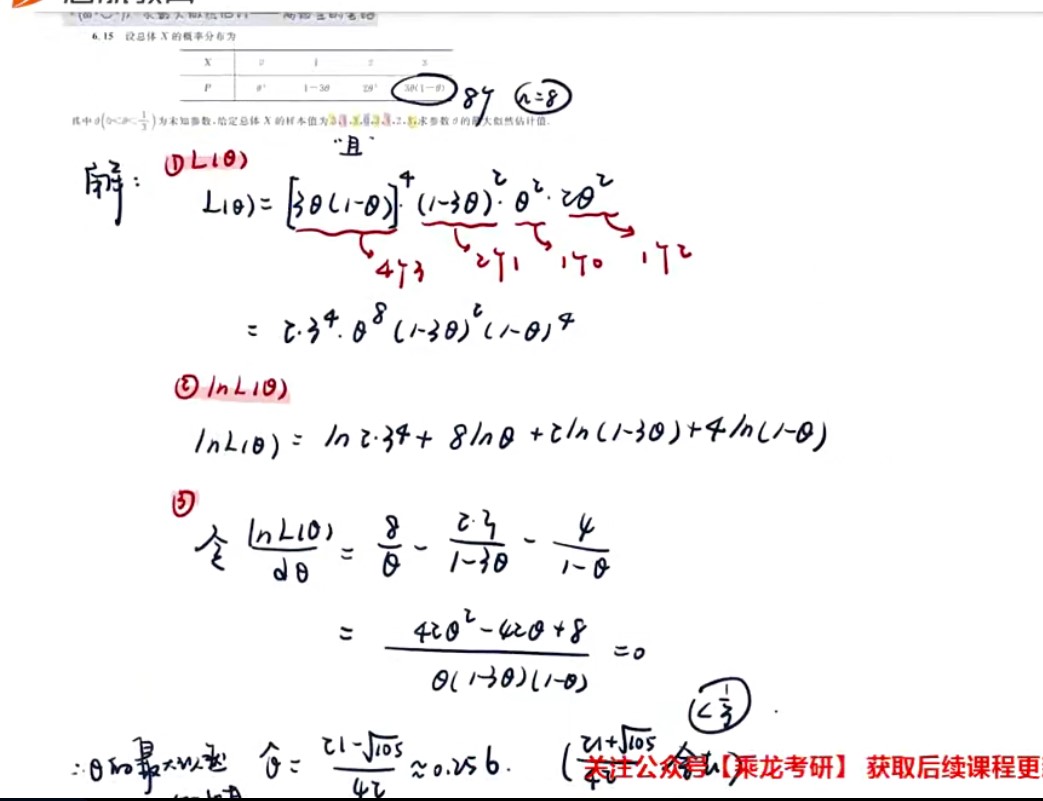 6.15 设总体 X 的概率分布为
X 0 1 2 3
P θ² 1-3θ 2θ² 3θ(1-θ) 8个 n=8
其中θ(0<θ<1/3)为未知参数,给定总体 X 的样本值为 求参数θ的最大似然估计值.
"且"
解: ① L(θ)
L(θ)= [3θ(1-θ)]⁴·(1-3θ)²·θ²·2θ²
4个3 2个1 1个0 1个2
= 2·3⁴·θ⁸(1-3θ)²(1-θ)⁴
② lnL(θ)
lnL(θ) = ln2·3⁴ + 8lnθ + 2ln(1-3θ) + 4ln(1-θ)
③
令 lnL(θ)/dθ = 8/θ - 2·3/(1-3θ) - 4/(1-θ)
= (42θ²-42θ+8)/(θ(1-3θ)(1-θ)) =0
(<1/3)
∴θ的最大似然 θ̂ = (21-√105)/42 ≈0.256. ((21+√105)/42 舍去)
关注公众号【乘龙考研】 获取后续课程更